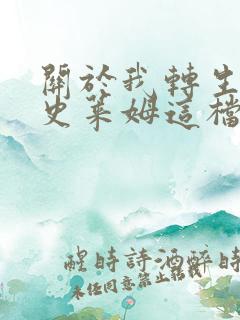 關於我轉生
史萊姆這檔
醒時詩酒醉時
未任同意禁止